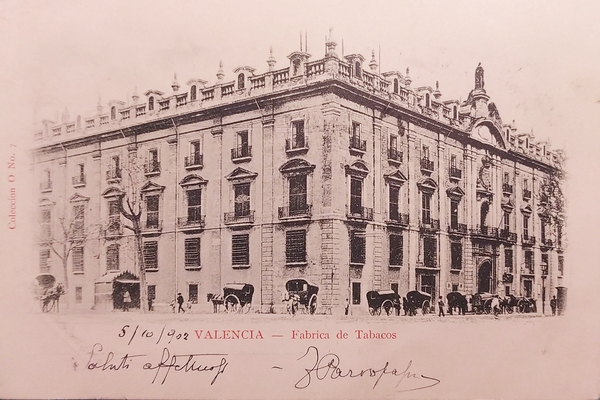 Coleccion O No. 7
5/10/902 VALENCIA — Fabrica de Tabacos
Saluti affettuosi —